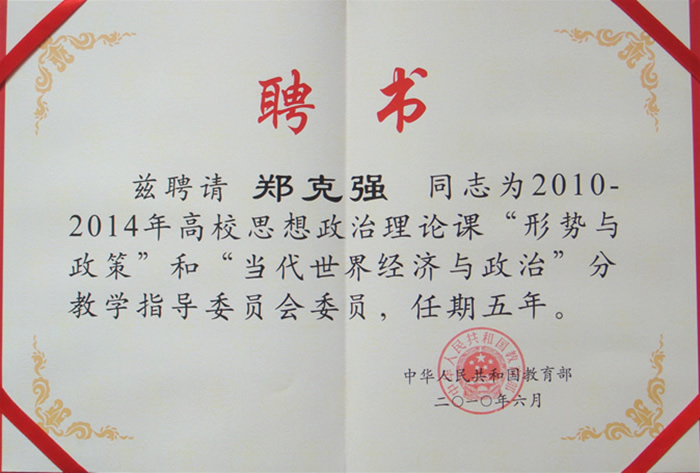 聘书
兹聘请 郑克强 同志为2010-
2014年高校思想政治理论课“形势与
政策”和“当代世界经济与政治”分
教学指导委员会委员，任期五年。
中华人民共和国教育部
二〇一〇年六月
中华人民共和国教育部